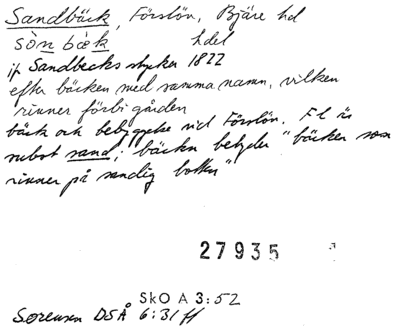 Sandbäck, Förslöv, Bjäre hd
sòn bæ̀k hdel
jfr Sandbecks stycker 1822
efter bäcken med samma namn, vilken
rinner förbi gården
bäck och bebyggelse vid Förslöv. F l är
subst sand; bäckn betyder "bäcken som
rinner på sandig botten"
27935
SkO A 3:52
Sörensen DSÅ 6:31 ff